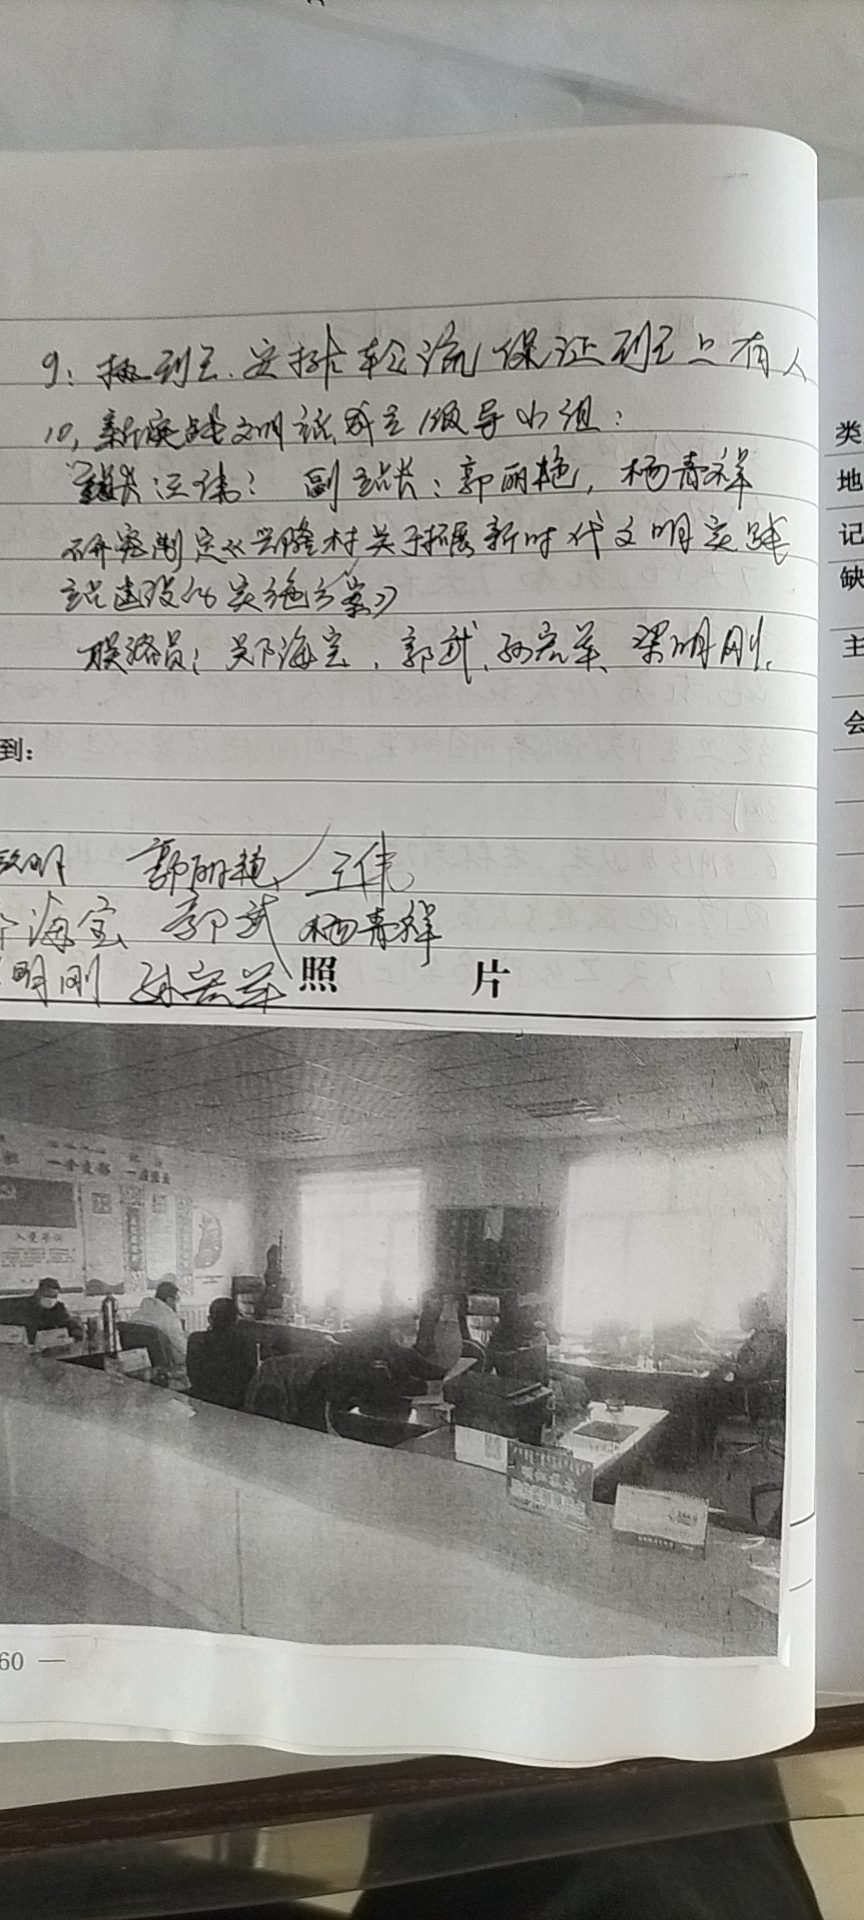 9: 执到卫.安排轮流保证到卫上有人
10、新实践文明站成立领导小组:
站长:王伟: 副站长:郭丽艳,杨青祥
研究制定《兴隆村关于拓展新时代文明实践
站建设的实施方案》
联络员:郑海宝、郭武、孙宏苹、梁明刚.
到:
明 郭丽艳 王伟
海宝 郭武 杨青祥
明刚 孙宏苹
照 片
一个支部 一座堡垒
入党誓词
60 —
类
地
记
缺
主
会